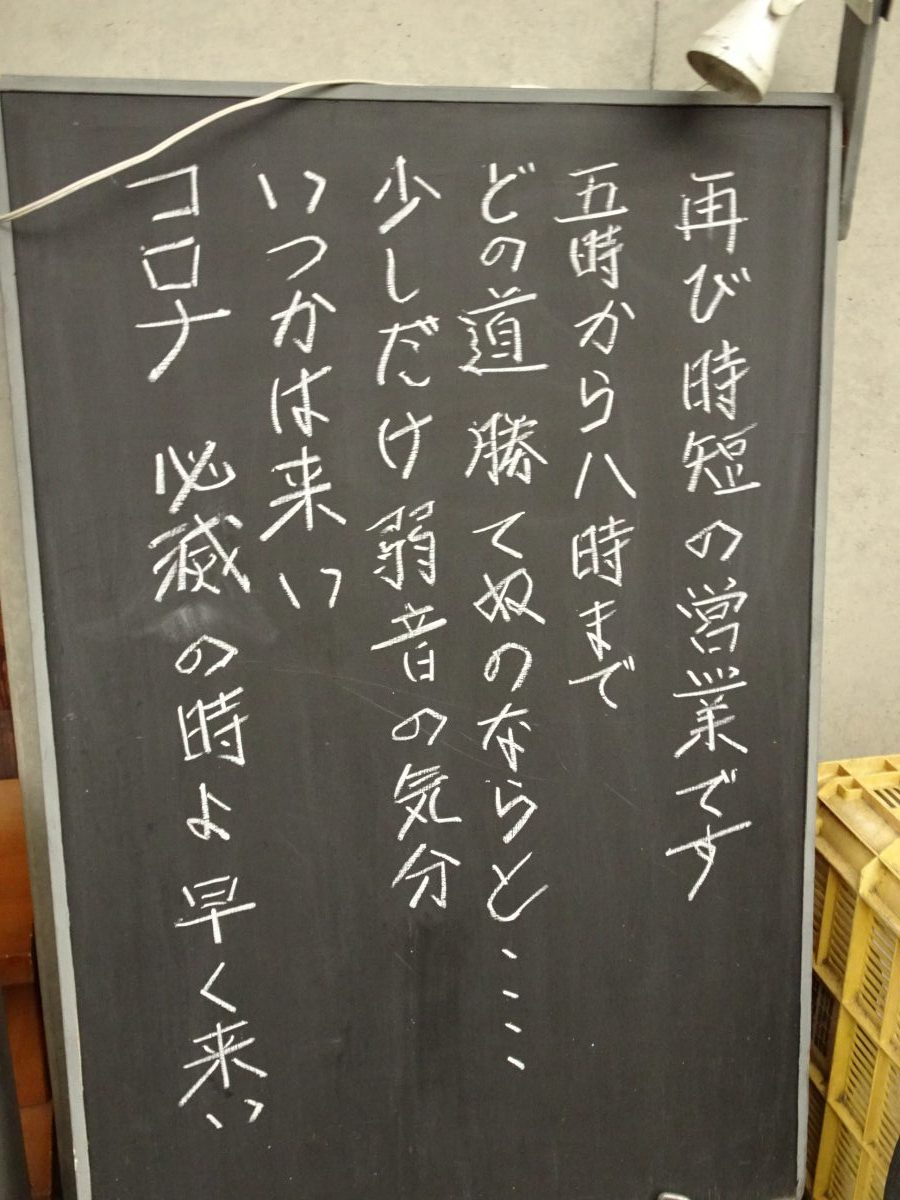 再び時短の営業です
五時から八時まで
どの道 勝てぬのならと・・・・
少しだけ弱音の気分
いつかは来い
コロナ 必滅の時よ 早く来い